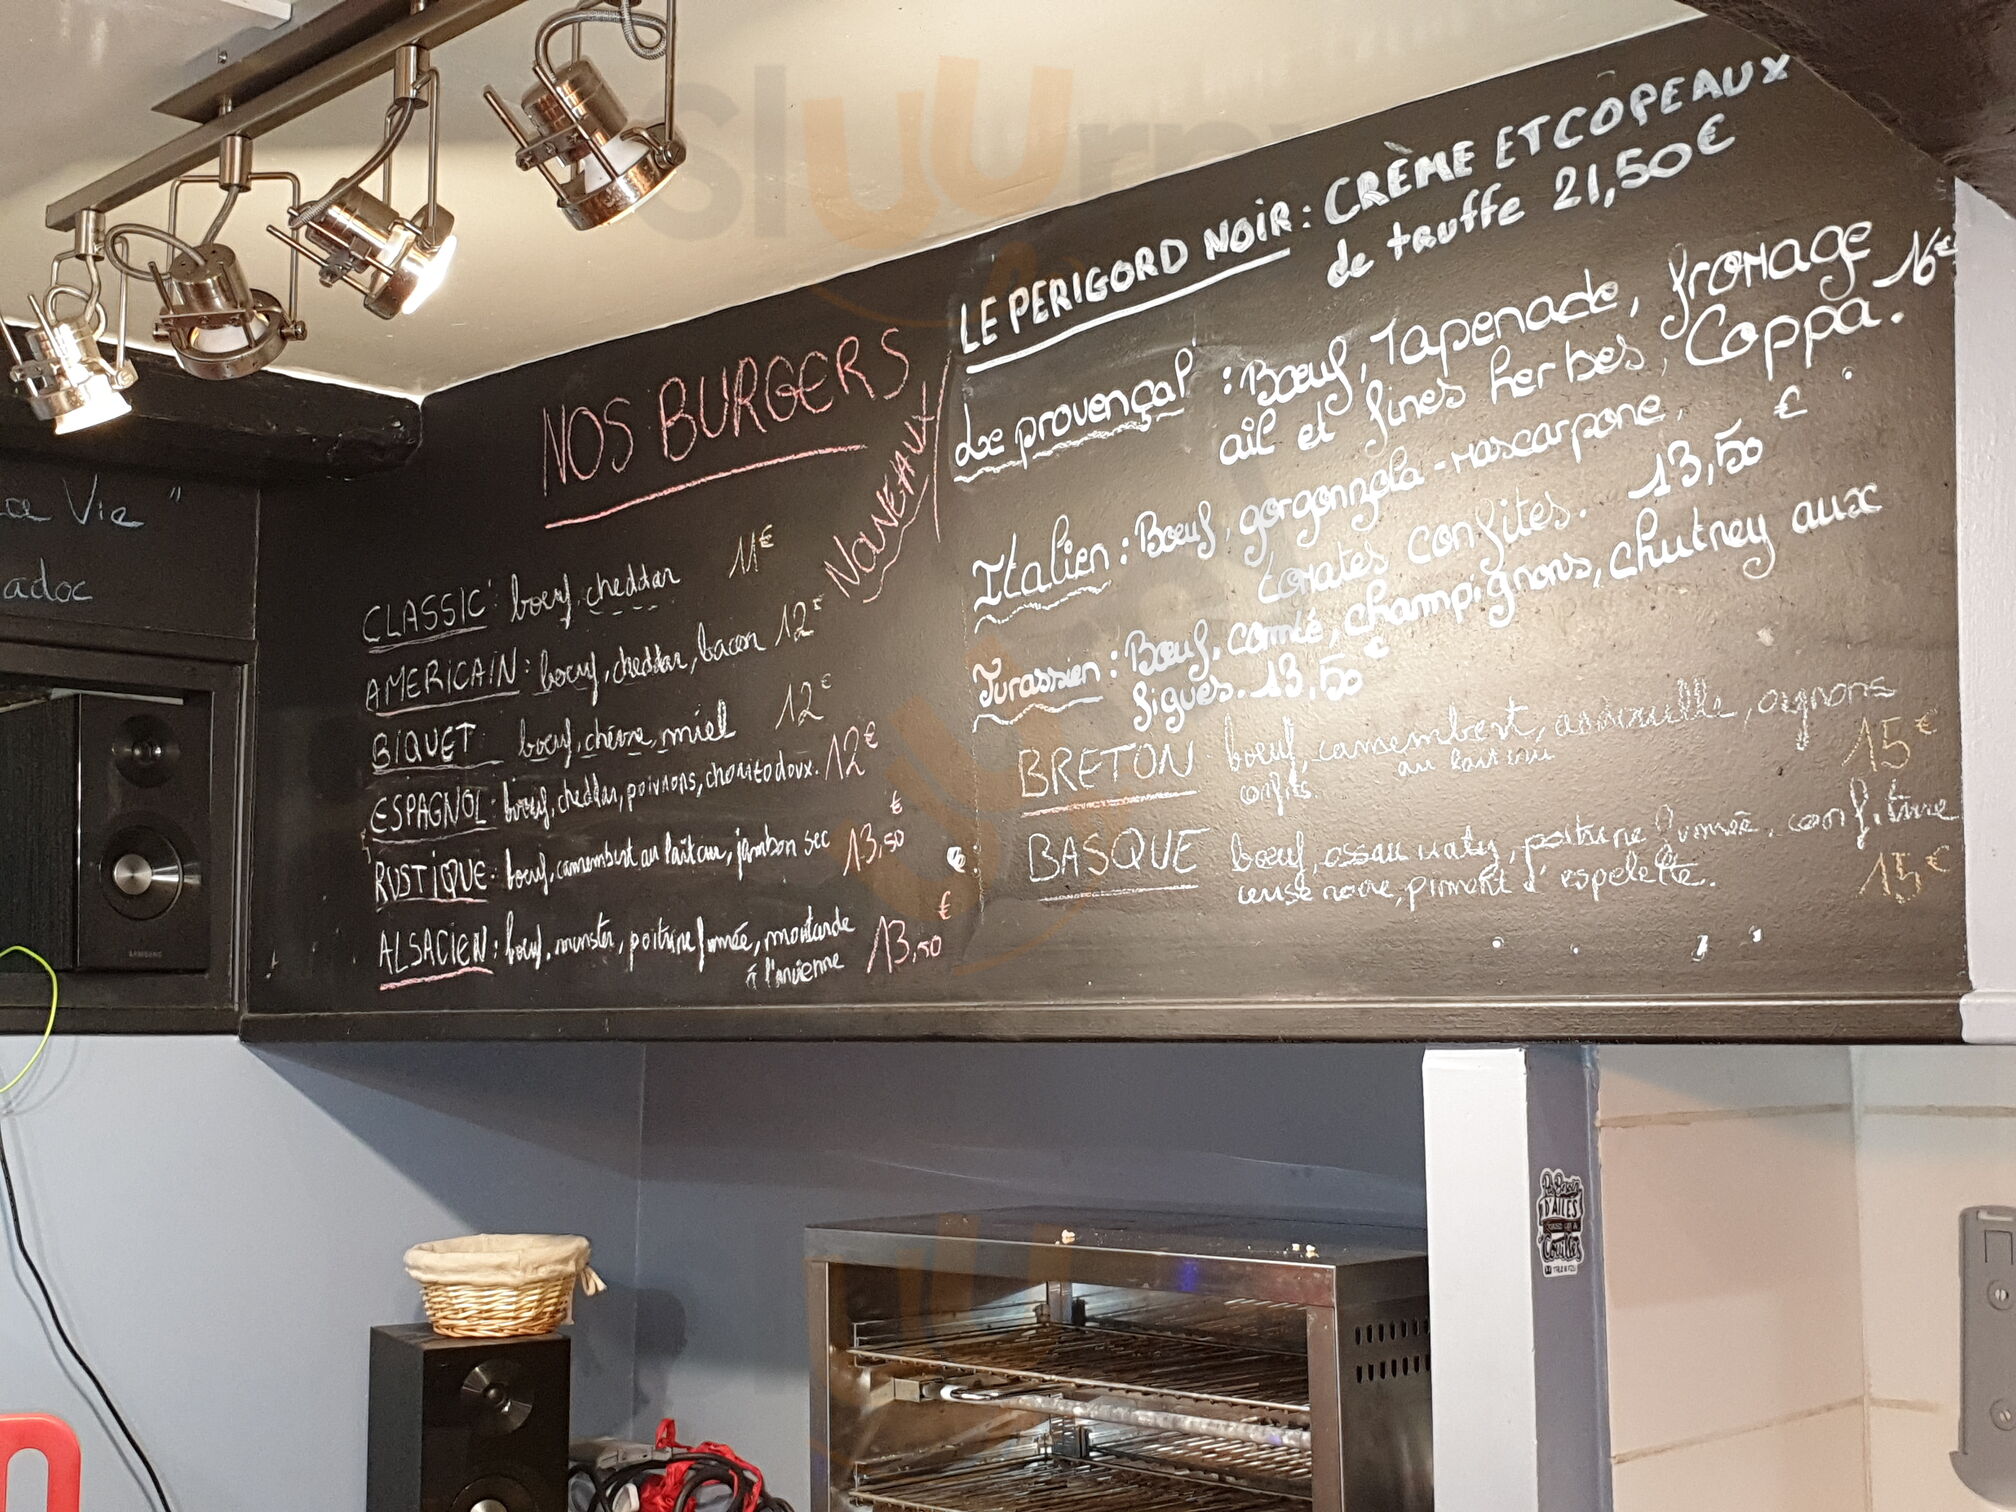 NOS BURGERS
NOUVEAUX
CLASSIC: boeuf, cheddar 11€
AMERICAIN: boeuf, cheddar, bacon 12€
BIQUET boeuf, chèvre, miel 12€
ESPAGNOL: boeuf, cheddar, poivrons, chorizo doux. 12€
RUSTIQUE: boeuf, camembert au lait cru, jambon sec 13,50€
ALSACIEN: boeuf, munster, poitrine fumée, moutarde
à l'ancienne 13,50€
LE PERIGORD NOIR: CRÈME ET COPEAUX
de truffe 21,50€
Le provençal: Bœuf, Tapenade, fromage
ail et fines herbes, Coppa. 16€
Italien: Bœuf, gorgonzola-mascarpone,
tomates confites. 13,50€
Jurassien: Bœuf, comté, champignons, chutney aux
figues. 13,50€
BRETON boeuf, camembert, andouille, oignons
au lait cru
confits. 15€
BASQUE boeuf, ossau iraty, poitrine fumée, confiture
cerise noire, piment d'espelette. 15€
Vie"
adoc
SAMSUNG
D'AILES
Couilles
sluurpy